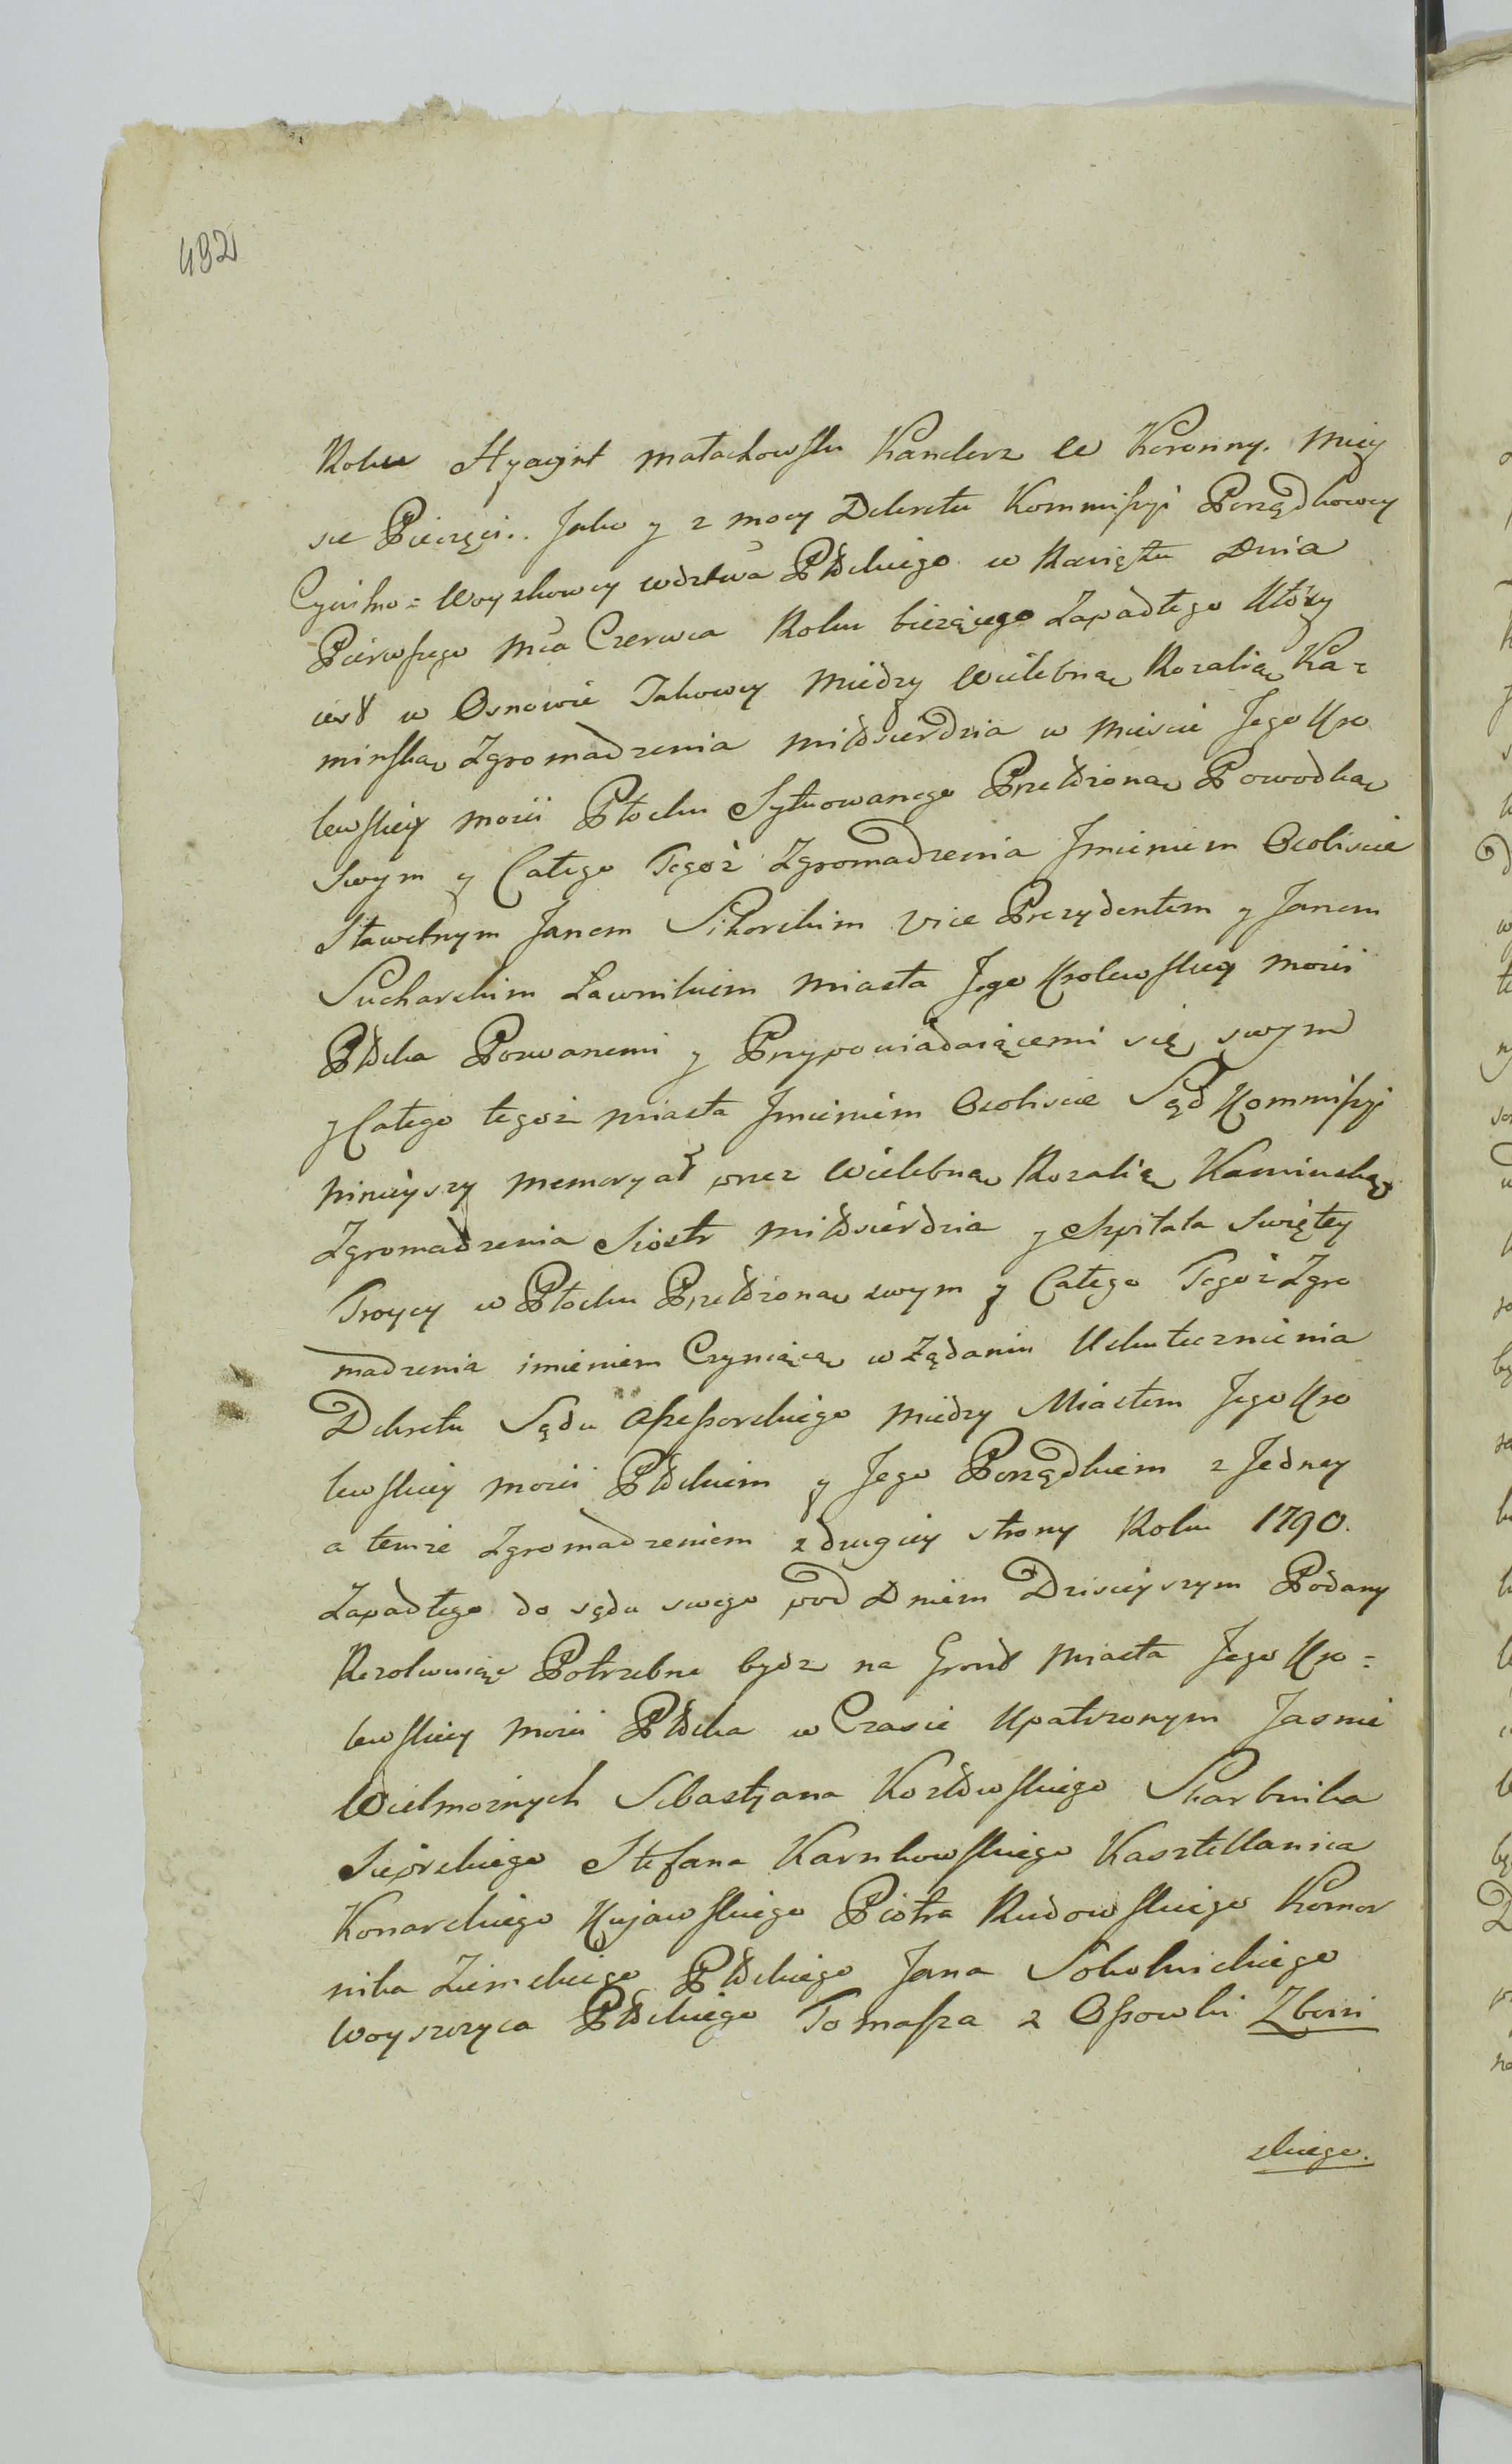 492
Roku Hyacynt Małachowski Kanclerz W Koronny. Miey
sce Pieczęci.. Jako y z mocy Dekretu Kommissyi Porządkowey
Cywilno = Woyskowey wdztwa Płockiego w Raciążu Dnia
Pierwszego Mca Czerwca Roku bieżącego Zapadłego Który
iest w Osnowie Takowey Między Wielebną Rozalią Ka=
minską Zgromadzenia Miłosierdzia w Mieście Jego Kro
lewskiey Mości Płocku Sytuowanego Przełożoną Powodką
Swym y Całego Tegoż Zgromadzenia Jmieniem Osobiscie
Sławetnym Janem Sikorskim Vice Prezydentem y Janem
Sucharskim Ławnikiem Miasta Jego Krolewskiey Mości
Płocka Pozwanemi y Przypowiadaiącemi się swym
y Całego tegoż Miasta Jmieniem Osobiscie Sąd Kommissyi
Ninieyszy Memoryał przez Wielebną Rozalią Kaminską
Zgromadzenia Siostr Miłosierdzia y Szpitala Swiętey
Troycy w Płocku Przełożoną swym y Całego Tegoż Zgro
madzenia imieniem Czyniącą w Żądaniu Uskutecznienia
Dekretu Sądu Assessorskiego między Miastem Jego Kro
lewskiey Mości Płockiem y Jego Porządkiem z Jedney
a temże Zgromadzeniem z drugiey strony Roku 1790.
Zapadłego do sądu swego pod Dniem Dzisieyszym Podany
Rezolwuiąc Potrzebne bydz na Gront Miasta Jego Kro=
lewskiey Mości Płocka w Czasie Upatrzonym Jasnie
Wielmożnych Sebastyana Kozłowskiego Skarbnika
Sierpskiego Stefana Karnkowskiego Kasztellanica
Konarskiego Kujawskiego Piotra Rudowskiego Komor
nika Ziemskiego Płockiego Jana Sokolnickiego
Woyszczyca Płockiego Tomasza z Ossowki Zboin
skiego.